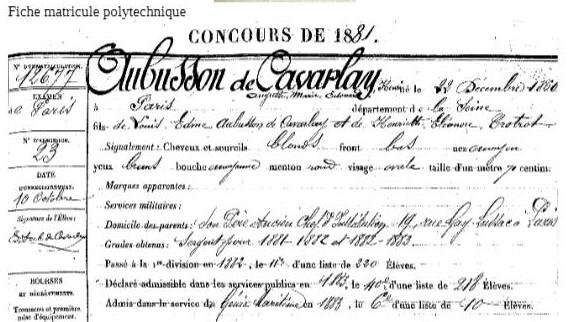 Fiche matricule polytechnique
CONCOURS DE 1881.
N° D'IMMATRICULATION.
12677
Aubusson de Cavarlay
Auguste, Marie, Edmond, né le 22 Décembre 1860
EXAMEN
de Paris
à Paris département de la Seine
fils de Louis Edme Aubusson de Cavarlay et de Henriette Eléonore Protrot
N°
23
Signalement : Cheveux et sourcils blonds front bas nez moyen
yeux bruns bouche moyenne menton rond visage ovale taille d'un mètre 70 centim.
DATE
10 Octobre
Marques apparentes :
Services militaires :
Signature de l'Élève :
Domicile des parents : Son Père Ancien Chef d'Institution 19, rue Gay-Lussac à Paris
Grades obtenus : Sergent pour 1881-1882 et 1882-1883
Passé à la 1re division en 1882, le 11e d'une liste de 220 Élèves.
BOURSES
Déclaré admissible dans les services publics en 1883, le 40e d'une liste de 218 Élèves.
Admis dans le service du Génie Maritime en 1883, le 6e d'une liste de 10 Élèves.
Trousseau et première
mise d'équipement.